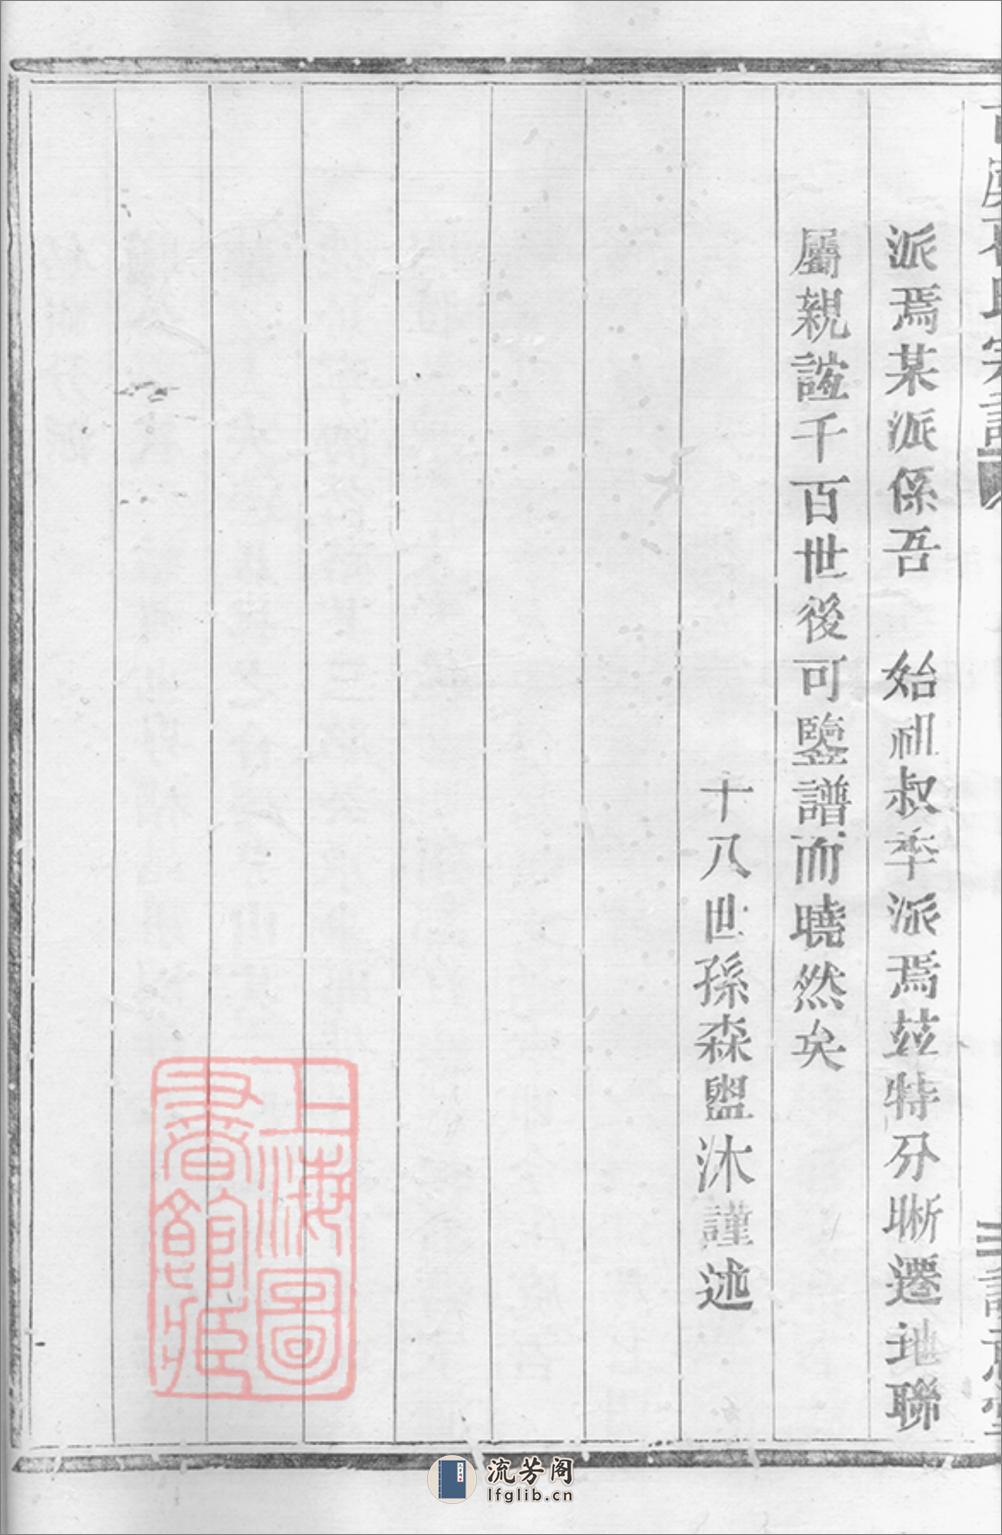 派焉某派係吾　始祖叔季派焉茲特分晰遷地聯
屬親誼千百世後可鑒譜而曉然矣
十八世孫森盥沐謹述
上海圖書館藏
流芳阁
lfglib.cn